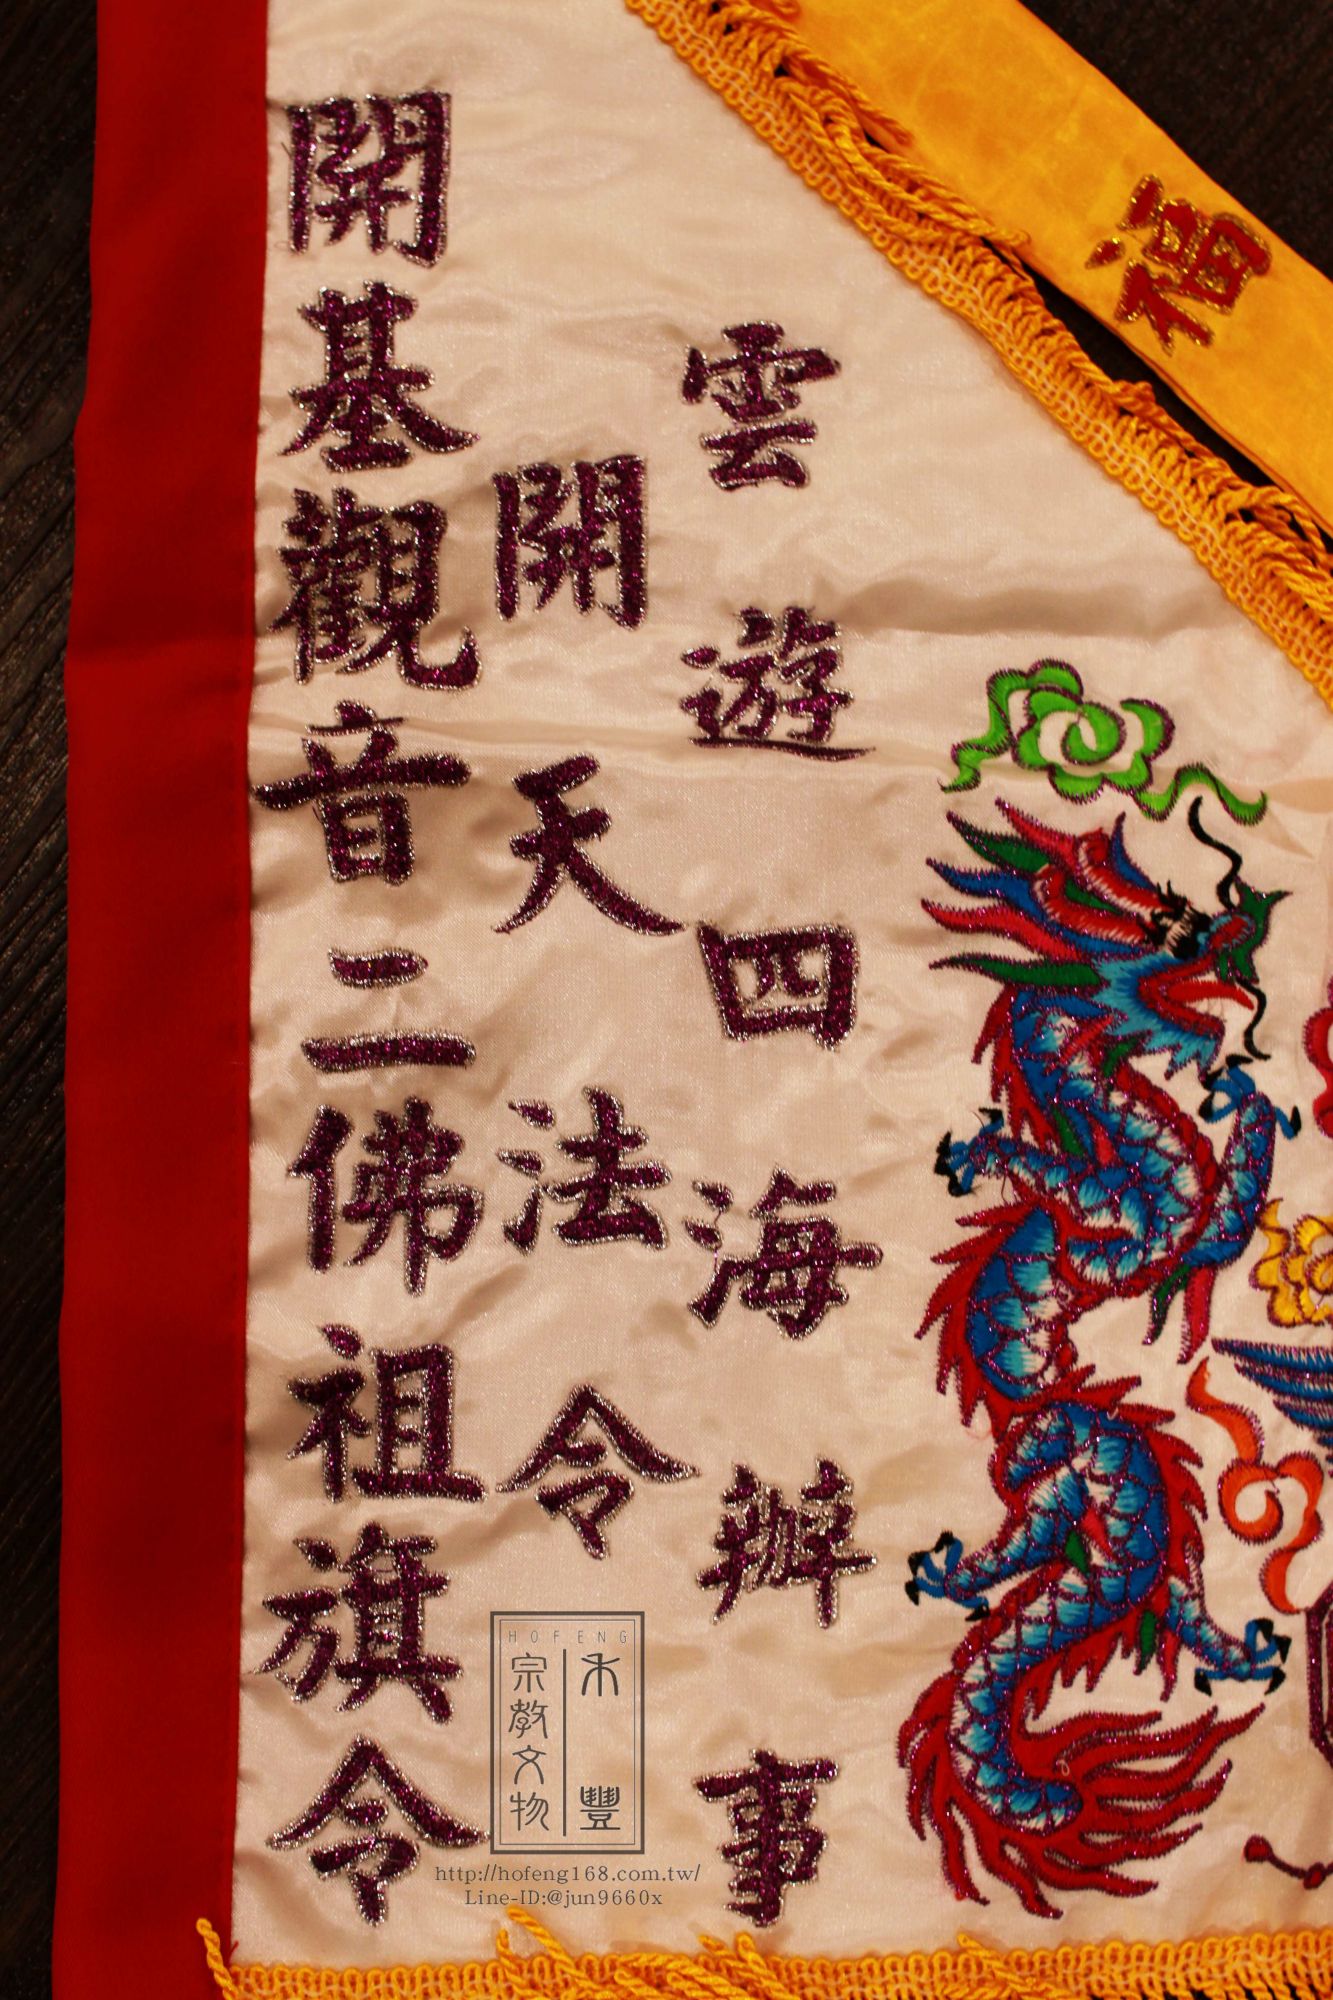 福
雲遊四海辦事
開天法令
開基觀音二佛祖旗令
HOFENG
禾豐
宗教文物
http://hofeng168.com.tw/
Line-ID:@jun9660x